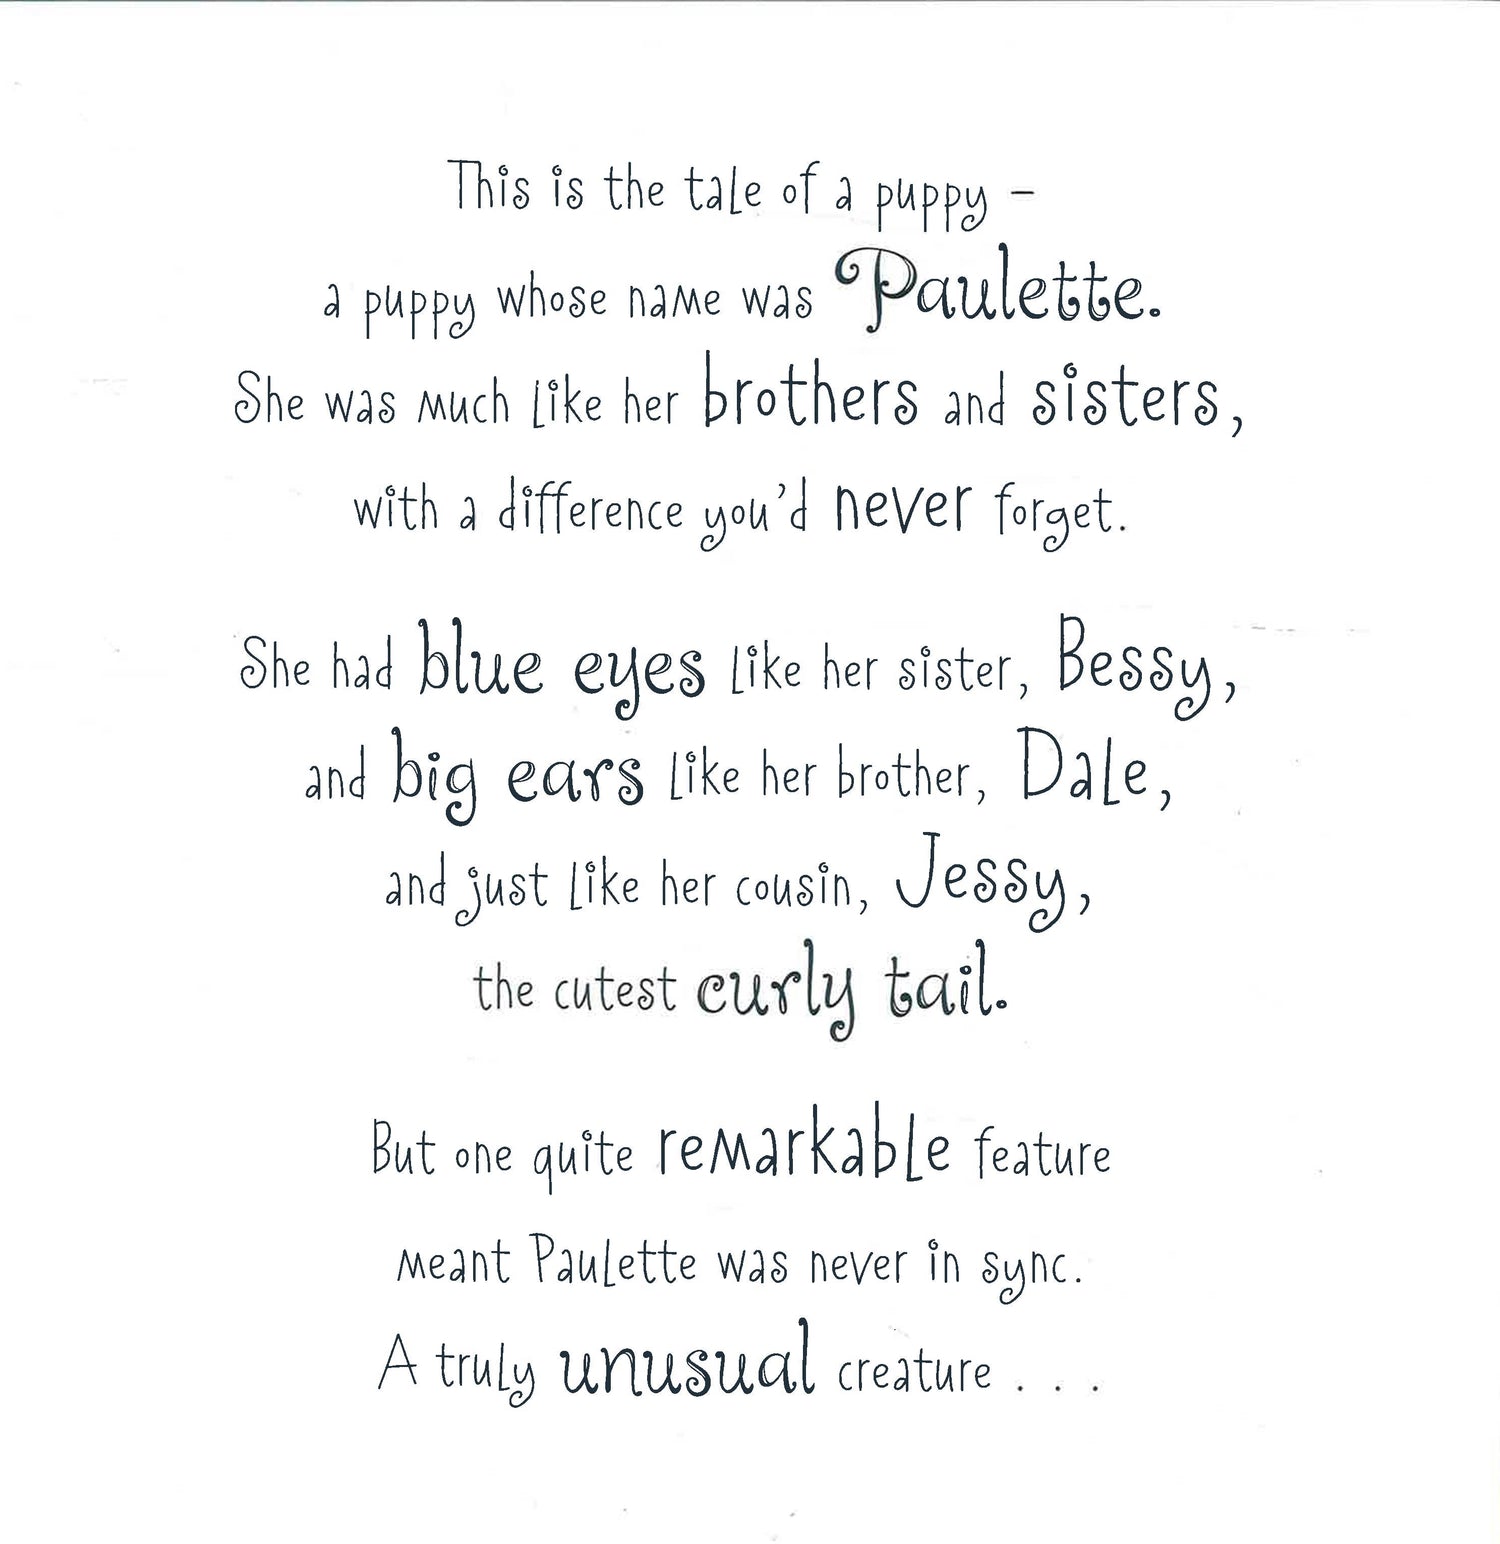 This is the tale of a puppy –
a puppy whose name was Paulette.
She was much like her brothers and sisters,
with a difference you'd never forget.
She had blue eyes like her sister, Bessy,
and big ears like her brother, Dale,
and just like her cousin, Jessy,
the cutest curly tail.
But one quite remarkable feature
meant Paulette was never in sync.
A truly unusual creature . . .